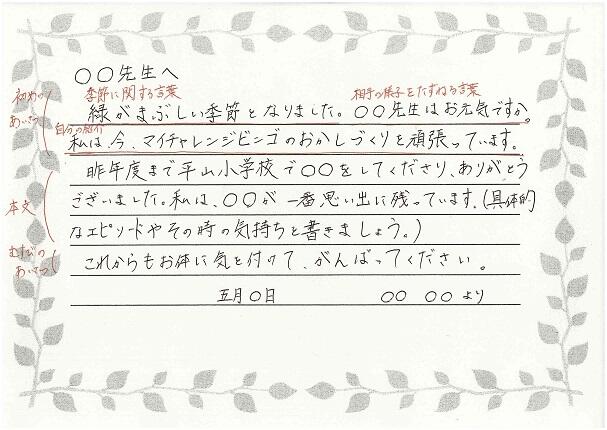 〇〇先生へ
季節に関する言葉
相手の様子をたずねる言葉
初めの
あいさつ
緑がまぶしい季節となりました。〇〇先生はお元気ですか。
自分の紹介
私は、今、マイチャレンジビンゴのおかしづくりを頑張っています。
昨年度まで平山小学校で〇〇をしてくださり、ありがとう
ございました。私は、〇〇が一番思い出に残っています。(具体的
本文
なエピソードやその時の気持ちを書きましょう。)
むすびの
あいさつ
これからもお体に気を付けて、がんばってください。
五月〇日
〇〇 〇〇より